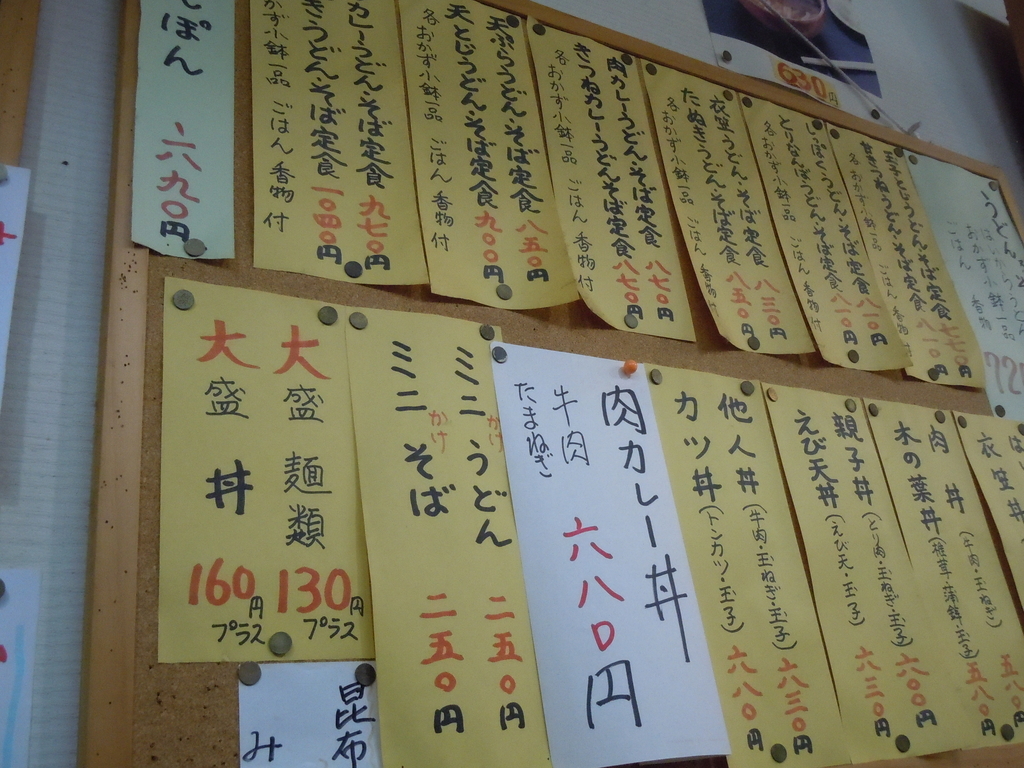 630円
うどん
ごはん
72
玉子とじうどん・そば定食 七七〇円
きつねうどん・そば定食 八一〇円
しっぽくうどん・そば定食 八一〇円
とろろこんぶうどん・そば定食 八一〇円
各おかず小鉢一品 ごはん 香物付
衣笠うどん・そば定食 八三〇円
たぬきうどん・そば定食 八五〇円
各おかず小鉢一品 ごはん 香物付
肉カレーうどん・そば定食 八七〇円
きつねカレーうどん・そば定食 八七〇円
各おかず小鉢一品 ごはん 香物付
天ぷらうどん・そば定食 八五〇円
天とじうどん・そば定食 九〇〇円
各おかず小鉢一品 ごはん 香物付
カレーうどん・そば定食 九七〇円
きうどん・そば定食 一〇四〇円
かず小鉢一品 ごはん 香物付
ぽん 二六九〇円
衣笠丼
肉丼(牛肉・玉ねぎ) 五八〇円
木の葉丼(椎茸・蒲鉾・玉子) 六〇〇円
親子丼(とり肉・玉ねぎ・玉子) 六〇〇円
えび天丼(えび天・玉子) 六三〇円
他人丼(牛肉・玉ねぎ・玉子) 六三〇円
カツ丼(トンカツ・玉子) 六八〇円
肉カレー丼
牛肉 六八〇円
たまねぎ
ミニかけうどん 二五〇円
ミニかけそば 二五〇円
大盛麺類 130円プラス
大盛丼 160円プラス
昆布
み